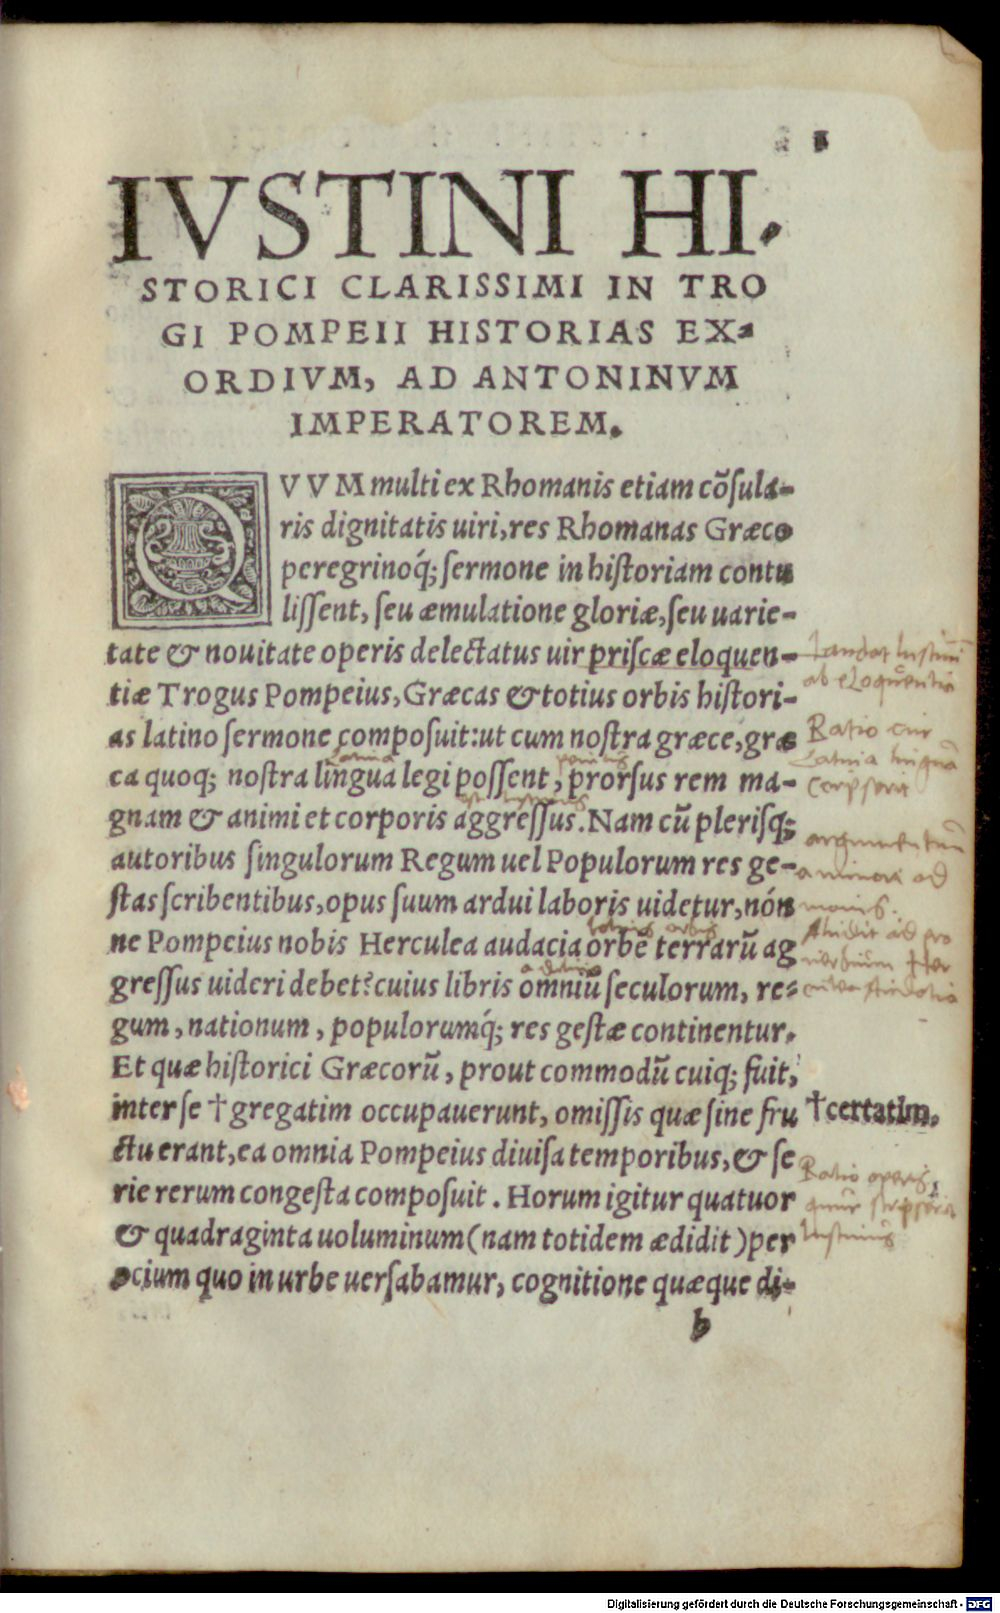 1
IVSTINI HI-
STORICI CLARISSIMI IN TRO
GI POMPEII HISTORIAS EX-
ORDIVM, AD ANTONINVM
IMPERATOREM.
QVVM multi ex Rhomanis etiam cōsula-
ris dignitatis uiri, res Rhomanas Græco
peregrinoq́; sermone in historiam contu
lissent, seu æmulatione gloriæ, seu uarie-
tate & nouitate operis delectatus uir priscæ eloquen-
tiæ Trogus Pompeius, Græcas & totius orbis histori-
as latino sermone composuit: ut cum nostra græce, græ
Latina
ca quoq; nostra lingua legi possent, prorsus rem ma-
gnam & animi et corporis aggressus. Nam cū plerisq;
autoribus singulorum Regum uel Populorum res ge-
stas scribentibus, opus suum ardui laboris uidetur, nón
totius orbis
ne Pompeius nobis Herculea audacia orbē terrarū ag
gressus uideri debet? cuius libris omniū seculorum, re-
gum, nationum, populorumq́; res gestæ continentur.
Et quæ historici Græcorū, prout commodū cuiq; fuit,
inter se † gregatim occupauerunt, omissis quæ sine fru
ctu erant, ea omnia Pompeius diuisa temporibus, & se
rie rerum congesta composuit. Horum igitur quatuor
& quadraginta uoluminum (nam totidem ædidit) per
ocium quo in urbe uersabamur, cognitione quæque di-
b
Laudat
ab eloquentia
Ratio cur
Latina lingua
scripserit
argumentum
a minori ad
maius.
Alludit ad pro
uerbium
†certatim.
Ratio operis
scripserit
Iustinus
Digitalisierung gefördert durch die Deutsche Forschungsgemeinschaft - DFG